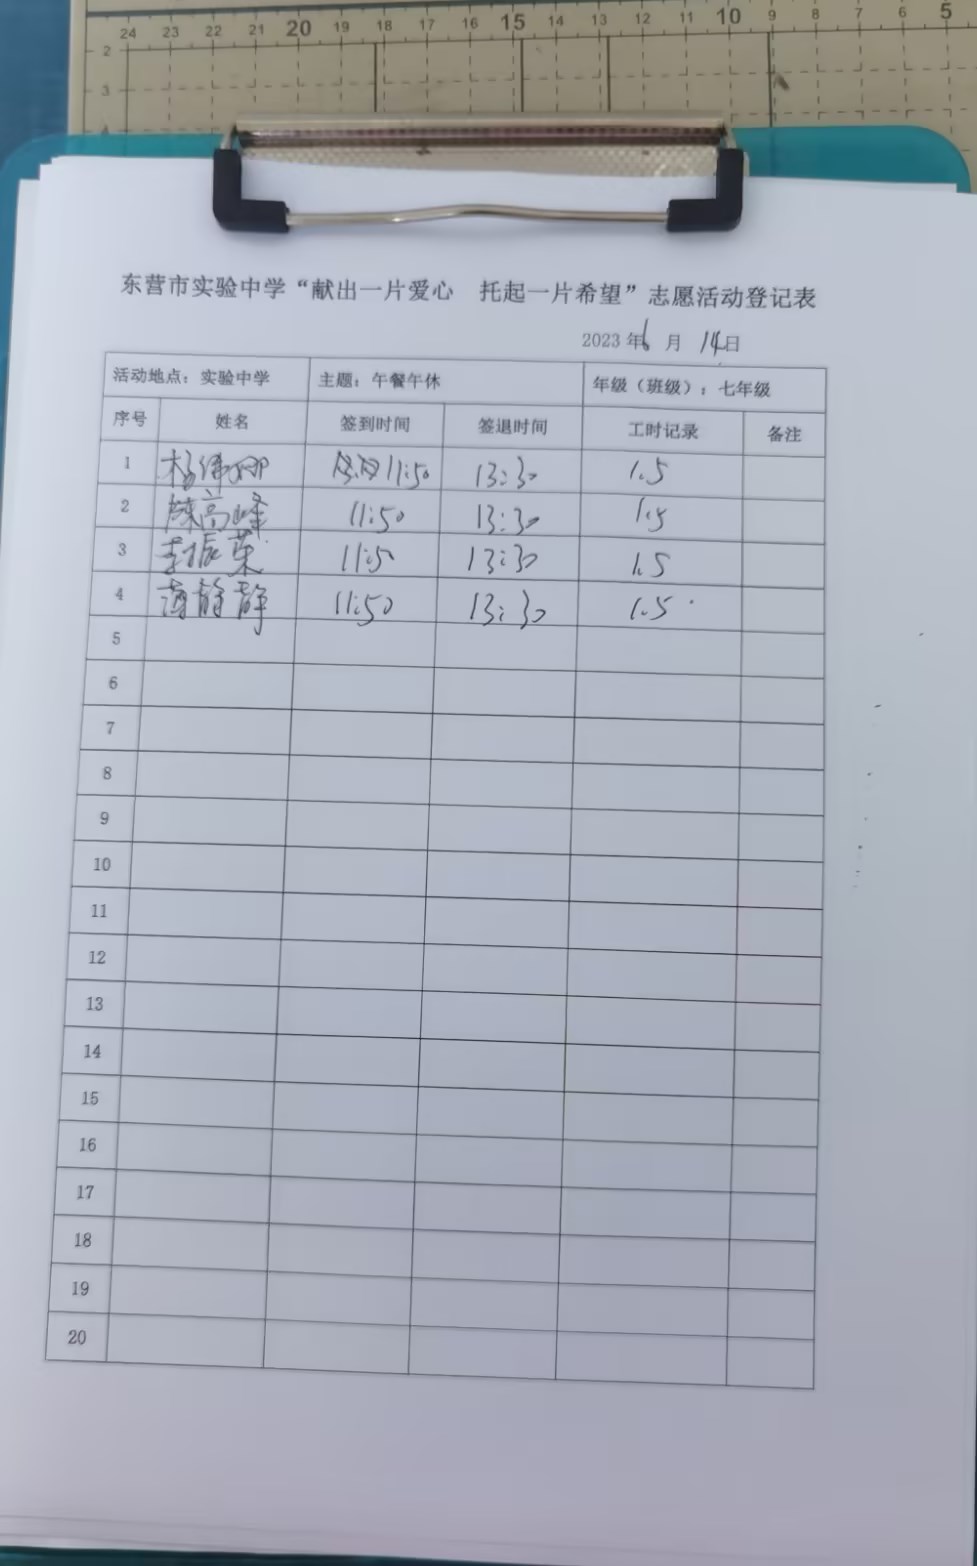 24 23 22 21 20 19 18 17 16 15 14 13 12 11 10 9 8 7 6 5
2
3
东营市实验中学“献出一片爱心 托起一片希望”志愿活动登记表
2023 年 6 月 14 日
活动地点：实验中学 主题：午餐午休 年级（班级）：七年级
序号 姓名 签到时间 签退时间 工时记录 备注
1 杨伟娜 11:50 13:30 1.5
2 陈高峰 11:50 13:30 1.5
3 李振英 11:50 13:30 1.5
4 薄静静 11:50 13:30 1.5
5
6
7
8
9
10
11
12
13
14
15
16
17
18
19
20